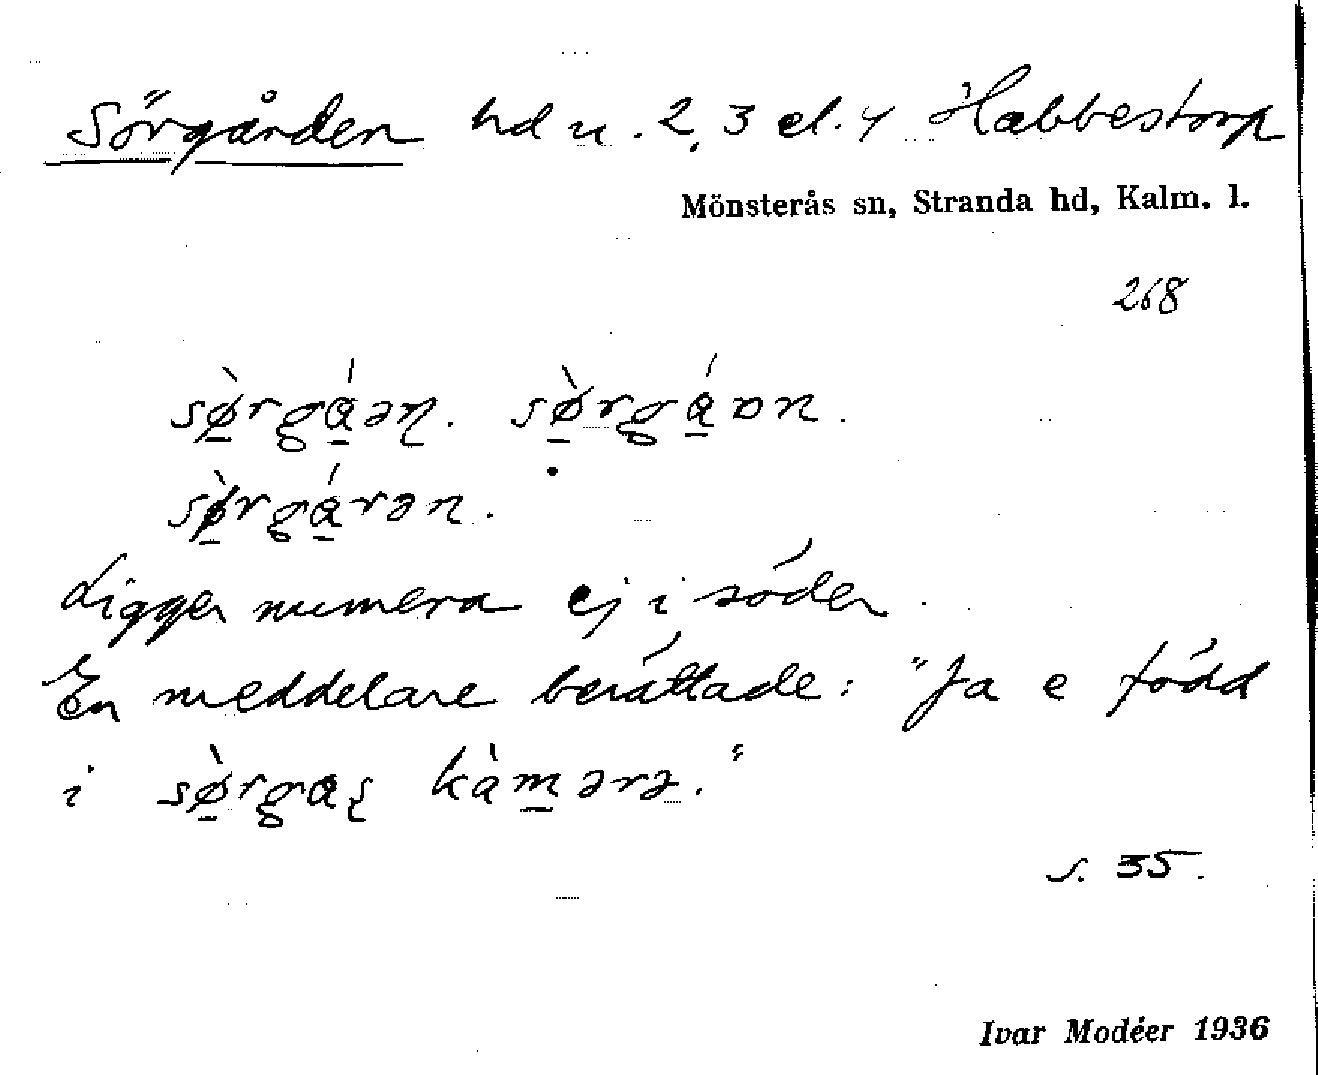 Sörgården hd u. 2, 3 el. 4 Habbestorp
Mönsterås sn, Stranda hd, Kalm. l.
268
sø̀rgáən. sø̀rgáɒn.
sø̀rgárən.
Ligger numera ej i söder.
En meddelare berättade: "Ja e född
i sø̀rgaʂ kàmərə."
s. 35.
Ivar Modéer 1936